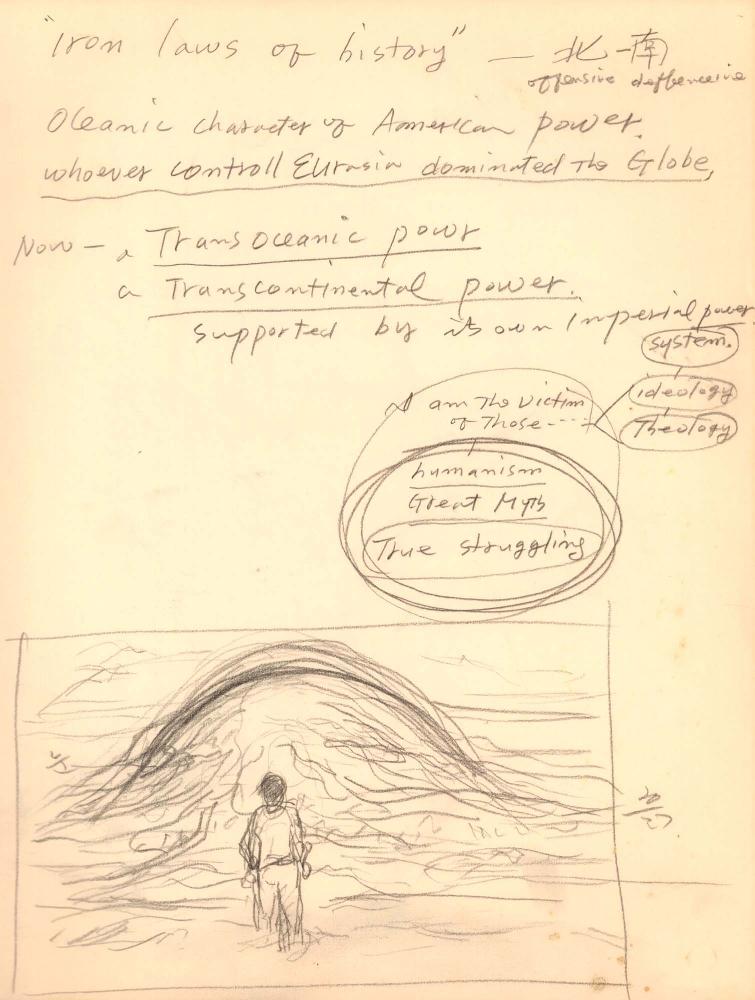 "Iron laws of history" — 北-南
offensive deffenceive
Oceanic character of American power.
whoever controll Eurasia dominated The Globe,
Now — a TransOceanic powr
a Transcontinental power.
supported by its own Imperial power
system.
ideology
Theology
I am The Victim
of Those ----
humanism
Great Myth
True struggling